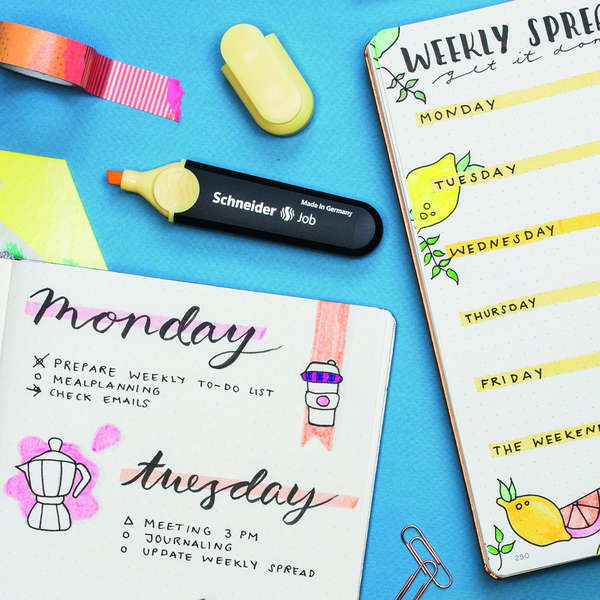 WEEKLY SPREA
get it don
MONDAY
TUESDAY
WEDNESDAY
THURSDAY
FRIDAY
THE WEEKEN
250
Made in Germany
Schneider Job
monday
PREPARE WEEKLY TO-DO LIST
MEALPLANNING
CHECK EMAILS
tuesday
MEETING 3 PM
JOURNALING
UPDATE WEEKLY SPREAD